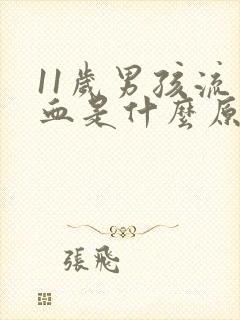 11歲男孩流
血是什麼原
張飛